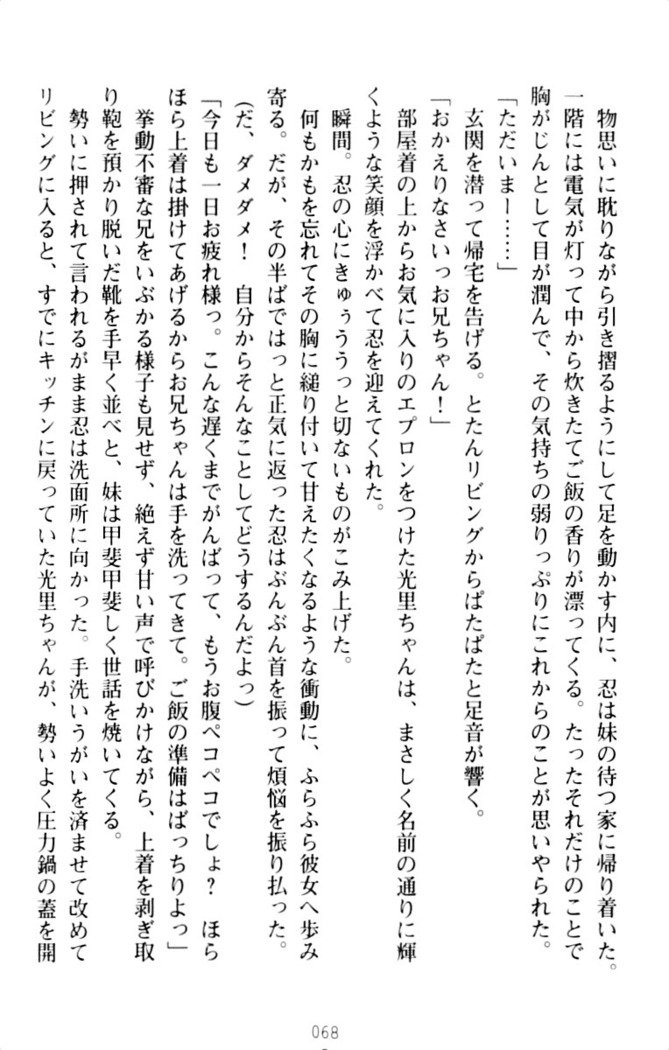 物思いに耽りながら引き摺るようにして足を動かす内に、忍は妹の待つ家に帰り着いた。
一階には電気が灯って中から炊きたてご飯の香りが漂ってくる。たったそれだけのことで
胸がじんとして目が潤んで、その気持ちの弱りっぷりにこれからのことが思いやられた。
「ただいまー……」
玄関を潜って帰宅を告げる。とたんリビングからぱたぱたと足音が響く。
「おかえりなさいっお兄ちゃん！」
部屋着の上からお気に入りのエプロンをつけた光里ちゃんは、まさしく名前の通りに輝
くような笑顔を浮かべて忍を迎えてくれた。
瞬間。忍の心にきゅぅううっと切ないものがこみ上げた。
何もかもを忘れてその胸に縋り付いて甘えたくなるような衝動に、ふらふら彼女へ歩み
寄る。だが、その半ばではっと正気に返った忍はぶんぶん首を振って煩悩を振り払った。
（だ、ダメダメ！　自分からそんなことしてどうするんだよっ）
「今日も一日お疲れ様っ。こんな遅くまでがんばって、もうお腹ペコペコでしょ？　ほら
ほら上着は掛けてあげるからお兄ちゃんは手を洗ってきて。ご飯の準備はばっちりよっ」
挙動不審な兄をいぶかる様子も見せず、絶えず甘い声で呼びかけながら、上着を剥ぎ取
り鞄を預かり脱いだ靴を手早く並べと、妹は甲斐甲斐しく世話を焼いてくる。
勢いに押されて言われるがまま忍は洗面所に向かった。手洗いうがいを済ませて改めて
リビングに入ると、すでにキッチンに戻っていた光里ちゃんが、勢いよく圧力鍋の蓋を開
068